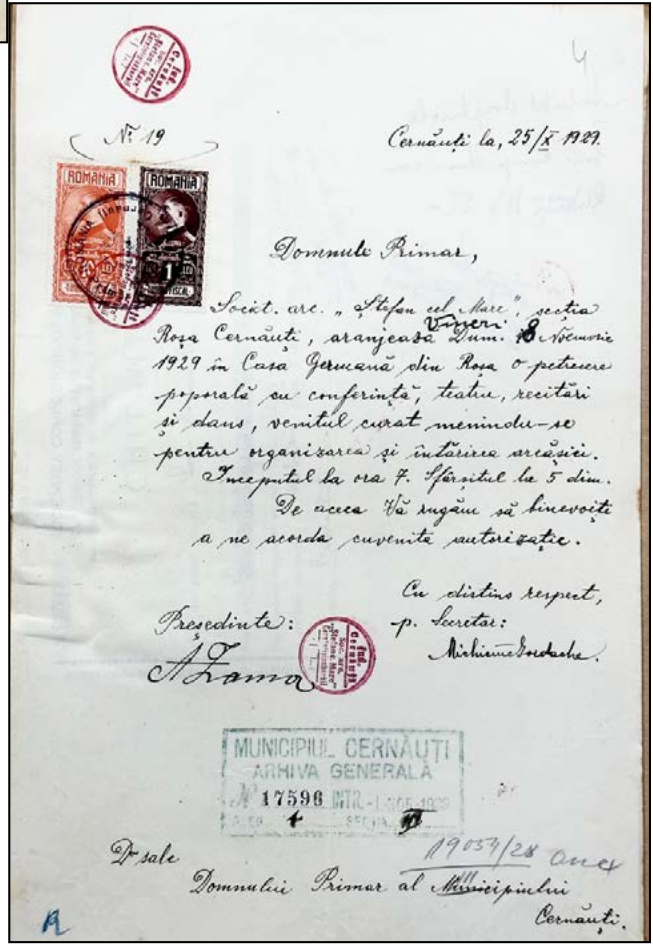 4
Jud. Cernăuți
Soc. arc.
"Ștefan c. Mare"
No 19
Cernăuți la, 25/X 1929.
ROMANIA ROMANIA
10 LEI 1 LEI
FISCAL
Domnule Primar,
Societ. arc. „Ștefan cel Mare”, secția
Vineri
Roșa Cernăuți, aranjează Dum. 8 Noemvrie
1929 în Casa Germană din Roșa o petrecere
poporală cu conferință, teatru, recitări
și dans, venitul curat menindu-se
pentru organizarea și întărirea arcășiei.
Începutul la ora 7. Sfârșitul la 5 dim.
De aceea Vă rugăm să binevoiți
a ne acorda cuvenita autorizație.
Cu distins respect,
Președinte: p. Secretar:
Jud. Cernăuți
Soc. arc.
"Ștefan c. Mare"
MUNICIPIUL CERNĂUȚI
ARHIVA GENERALĂ
No 17596 INTR.
4 SECȚIA III
19054/28
D-sale
Domnului Primar al Municipiului
Cernăuți.